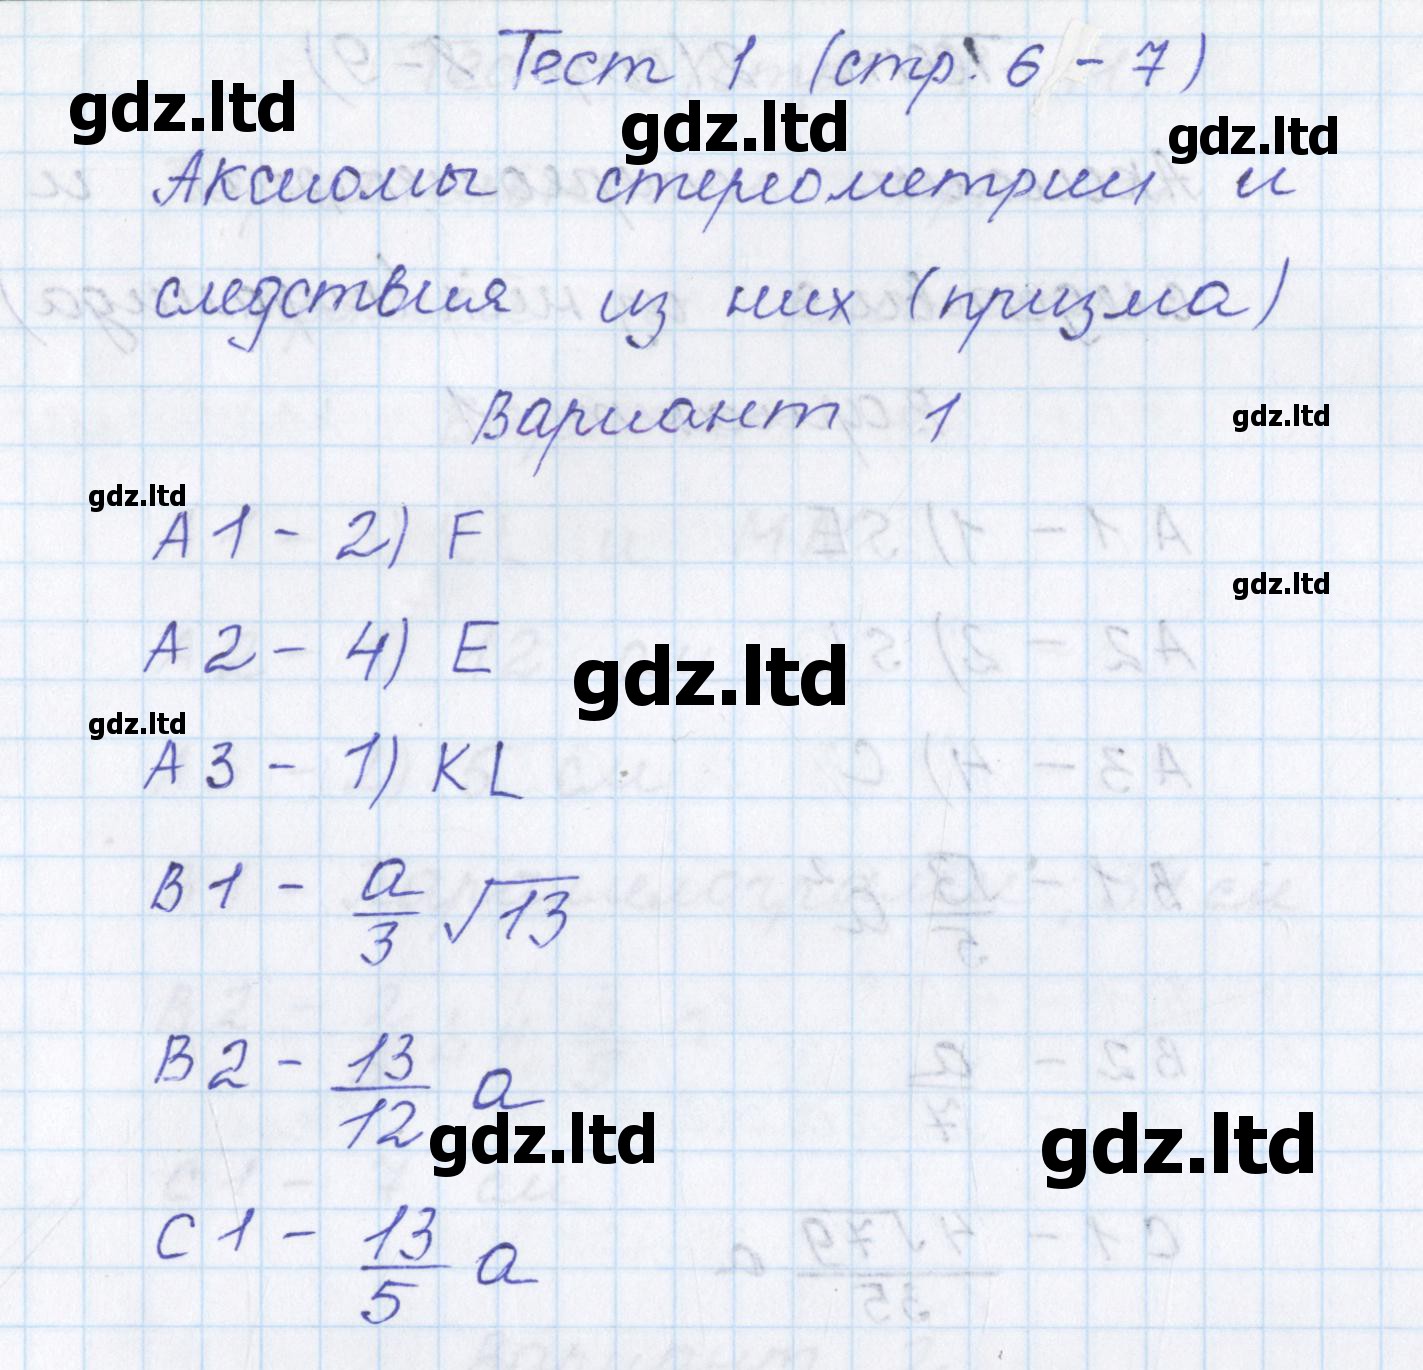 Тест 1 (стр. 6 - 7)
gdz.ltd gdz.ltd gdz.ltd
Аксиомы стереометрии и
следствия из них (призма)
Вариант 1
gdz.ltd
gdz.ltd
А1 - 2) F
gdz.ltd
А2 - 4) E
gdz.ltd
gdz.ltd
А3 - 1) KL
В1 - a/3 √13
В2 - 13/12 a
gdz.ltd gdz.ltd
С1 - 13/5 a